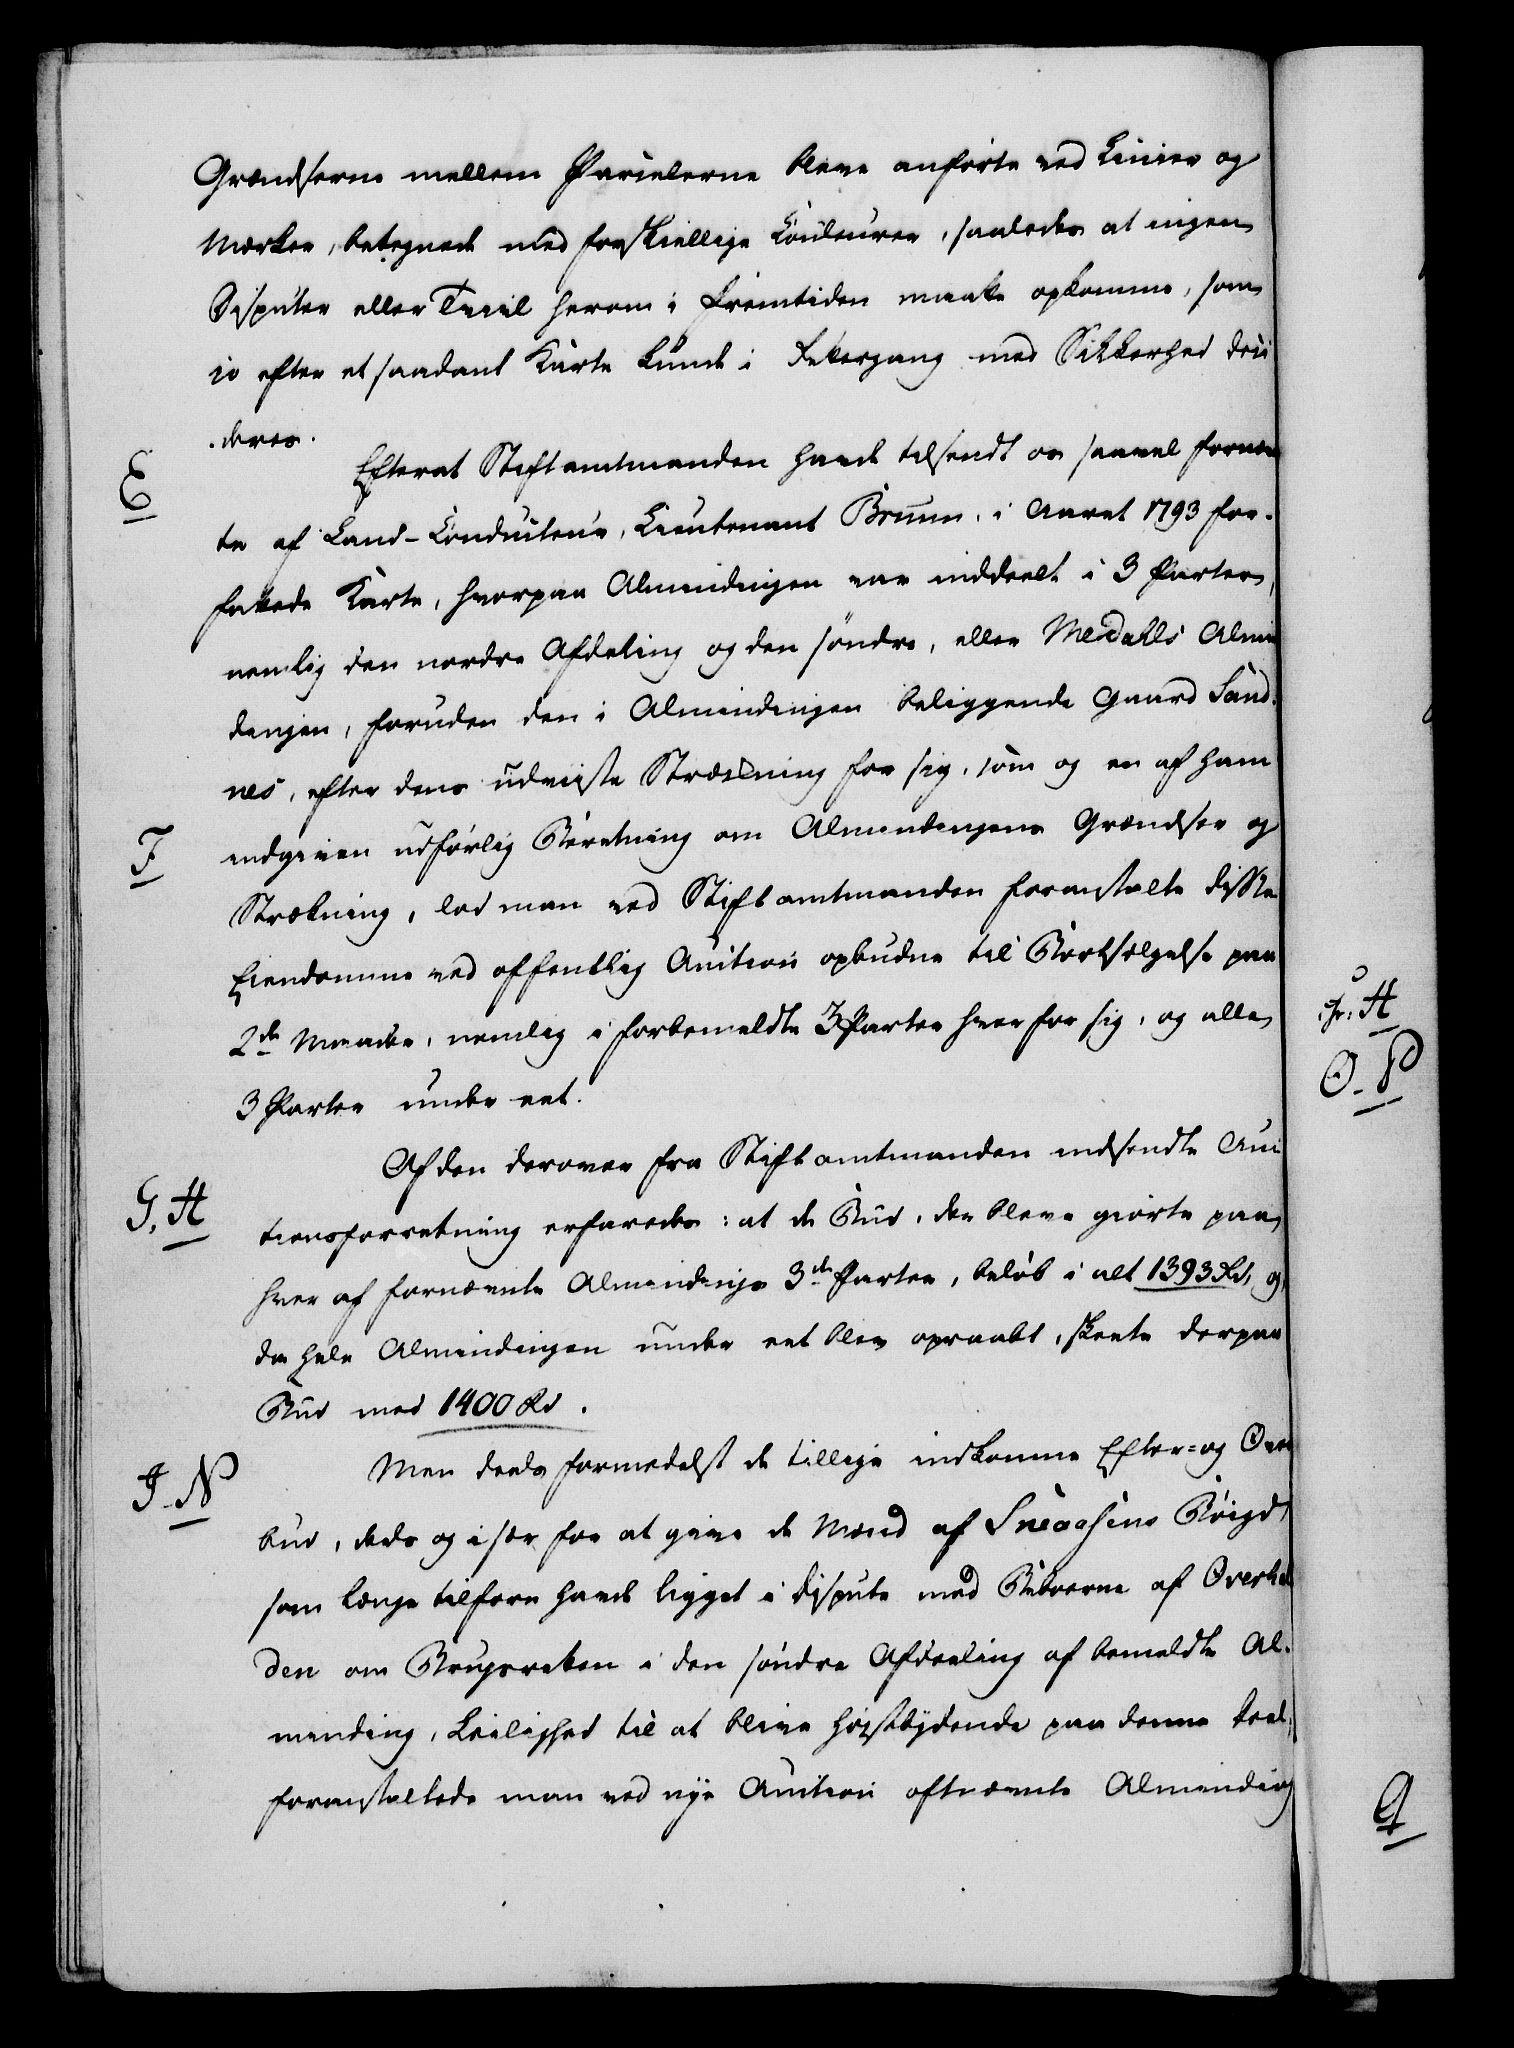 Grændserne mellem Parcelerne bleve anførte ved Linier og
Mærker, betegnede med forskiellige Couleurer, saaledes at ingen
Disputer eller Tvivl herom i Fremtiden maatte opkomme, som
jo efter et saadant Karte kunde i Rettergang med Sikkerhed deci
deres.
E
Efterat Stiftamtmanden havde tilsendt os saavel fornævn
te af Land-Conducteur, Lieutenant Bruun, i Aaret 1793 for-
fattede Karte, hvorpaa Almindingen var inddeelt i 3 Parter,
nemlig den nordre Afdeling og den søndre, eller Medahls Almin
dingen, foruden den i Almindingen beliggende Gaard Sand-
nes, efter dens udviiste Strækning for sig, som og en af ham
F
indgiven udførlig Beretning om Almindingens Grændser og
Strækning, lod man ved Stiftamtmanden foranstalte disse
Eiendomme ved offentlig Auction opbudne til Bortsælgelse paa
2de Maader, nemlig i forbemeldte 3 Parter hver for sig, og alle
3 Parter under eet.
G, H
Af den derover fra Stiftamtmanden indsendte Auc
tionsforretning erfaredes: at de Bud, der bleve giorte paa
hver af fornævnte Almindings 3de Parter, beløb i alt 1393 Rd, og
da hele Almindingen under eet blev opraabt, skeete derpaa
Bud med 1400 Rd.
I-N
Men deels formedelst de tillige indkomne Efter- og Over
bud, deels og især for at give de Mænd af Snaasens Bøigd,
som længe tilforn havde ligget i Dispute med Beboerne af Overhal
den om Brugsretten i den søndre Afdeeling af bemeldte Al-
minding, Leilighed til at blive høistbydende paa denne Deel,
foranstaltede man ved nye Auction oftnævnte Alminding
H
O-P
Q